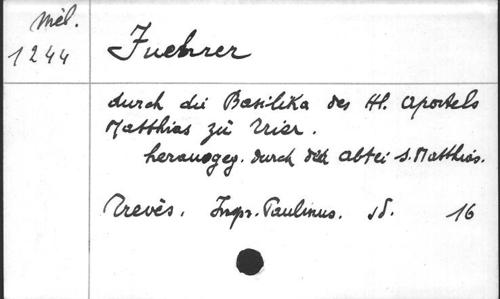 Mél.
1244
Fuehrer
durch die Basilika des Hl. Apostels
Matthias zu Trier.
herausgeg. durch die Abtei S. Matthias.
Trevès. Impr. Paulinus. sd. 16